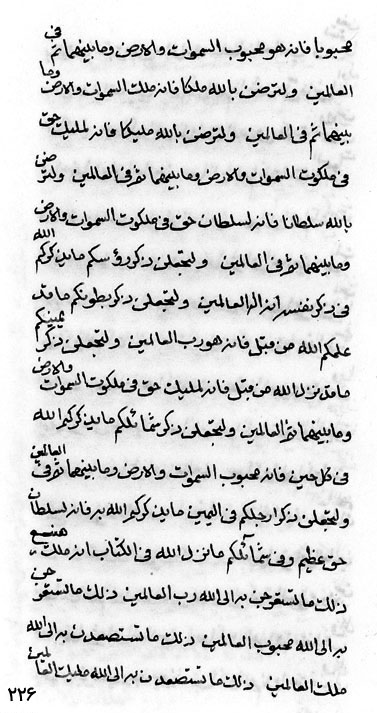 محبوبا فانه هو محبوب السموات والارض وما بينهما ثم في
العالمين ولترضن بالله ملكا فانه ملك السموات والارض وما
بينهما ثم في العالمين ولترضن بالله مليكا فانه لمليك حق
في ملكوت السموات والارض وما بينهما ثم في العالمين ولترضن
بالله سلطانا فانه لسلطان حق في ملكوت السموات والارض
وما بينهما ثم في العالمين ولتجعلن ذكر رؤسكم ما يذكركم الله
في ذكر نفسه انه اله العالمين ولتجعلن ذكر بطونكم ما قد
علمكم الله من قبل فانه هو رب العالمين ولتجعلن ذكر يمينكم
ما قد نزل الله من قبل فانه لمليك حق في ملكوت السموات والارض
وما بينهما ثم العالمين ولتجعلن ذكر شمائلكم ما يذكركم الله
في كل حين فانه محبوب السموات والارض وما بينهما ثم في العالمين
ولتجعلن ذكر ارجلكم في اليمين ما يذكركم الله به فانه لسلطان
حق عظيم وفي شمائلكم ما نزل الله في الكتاب انه ملك منيع
ذلك ما تستعرجن به الى الله رب العالمين ذلك ما تستعرجن
به الى الله محبوب العالمين ذلك ما تستصعدن به الى الله
ملك العالمين ذلك ما تستصعدن به الى الله مليك العالمين
۲۲۶